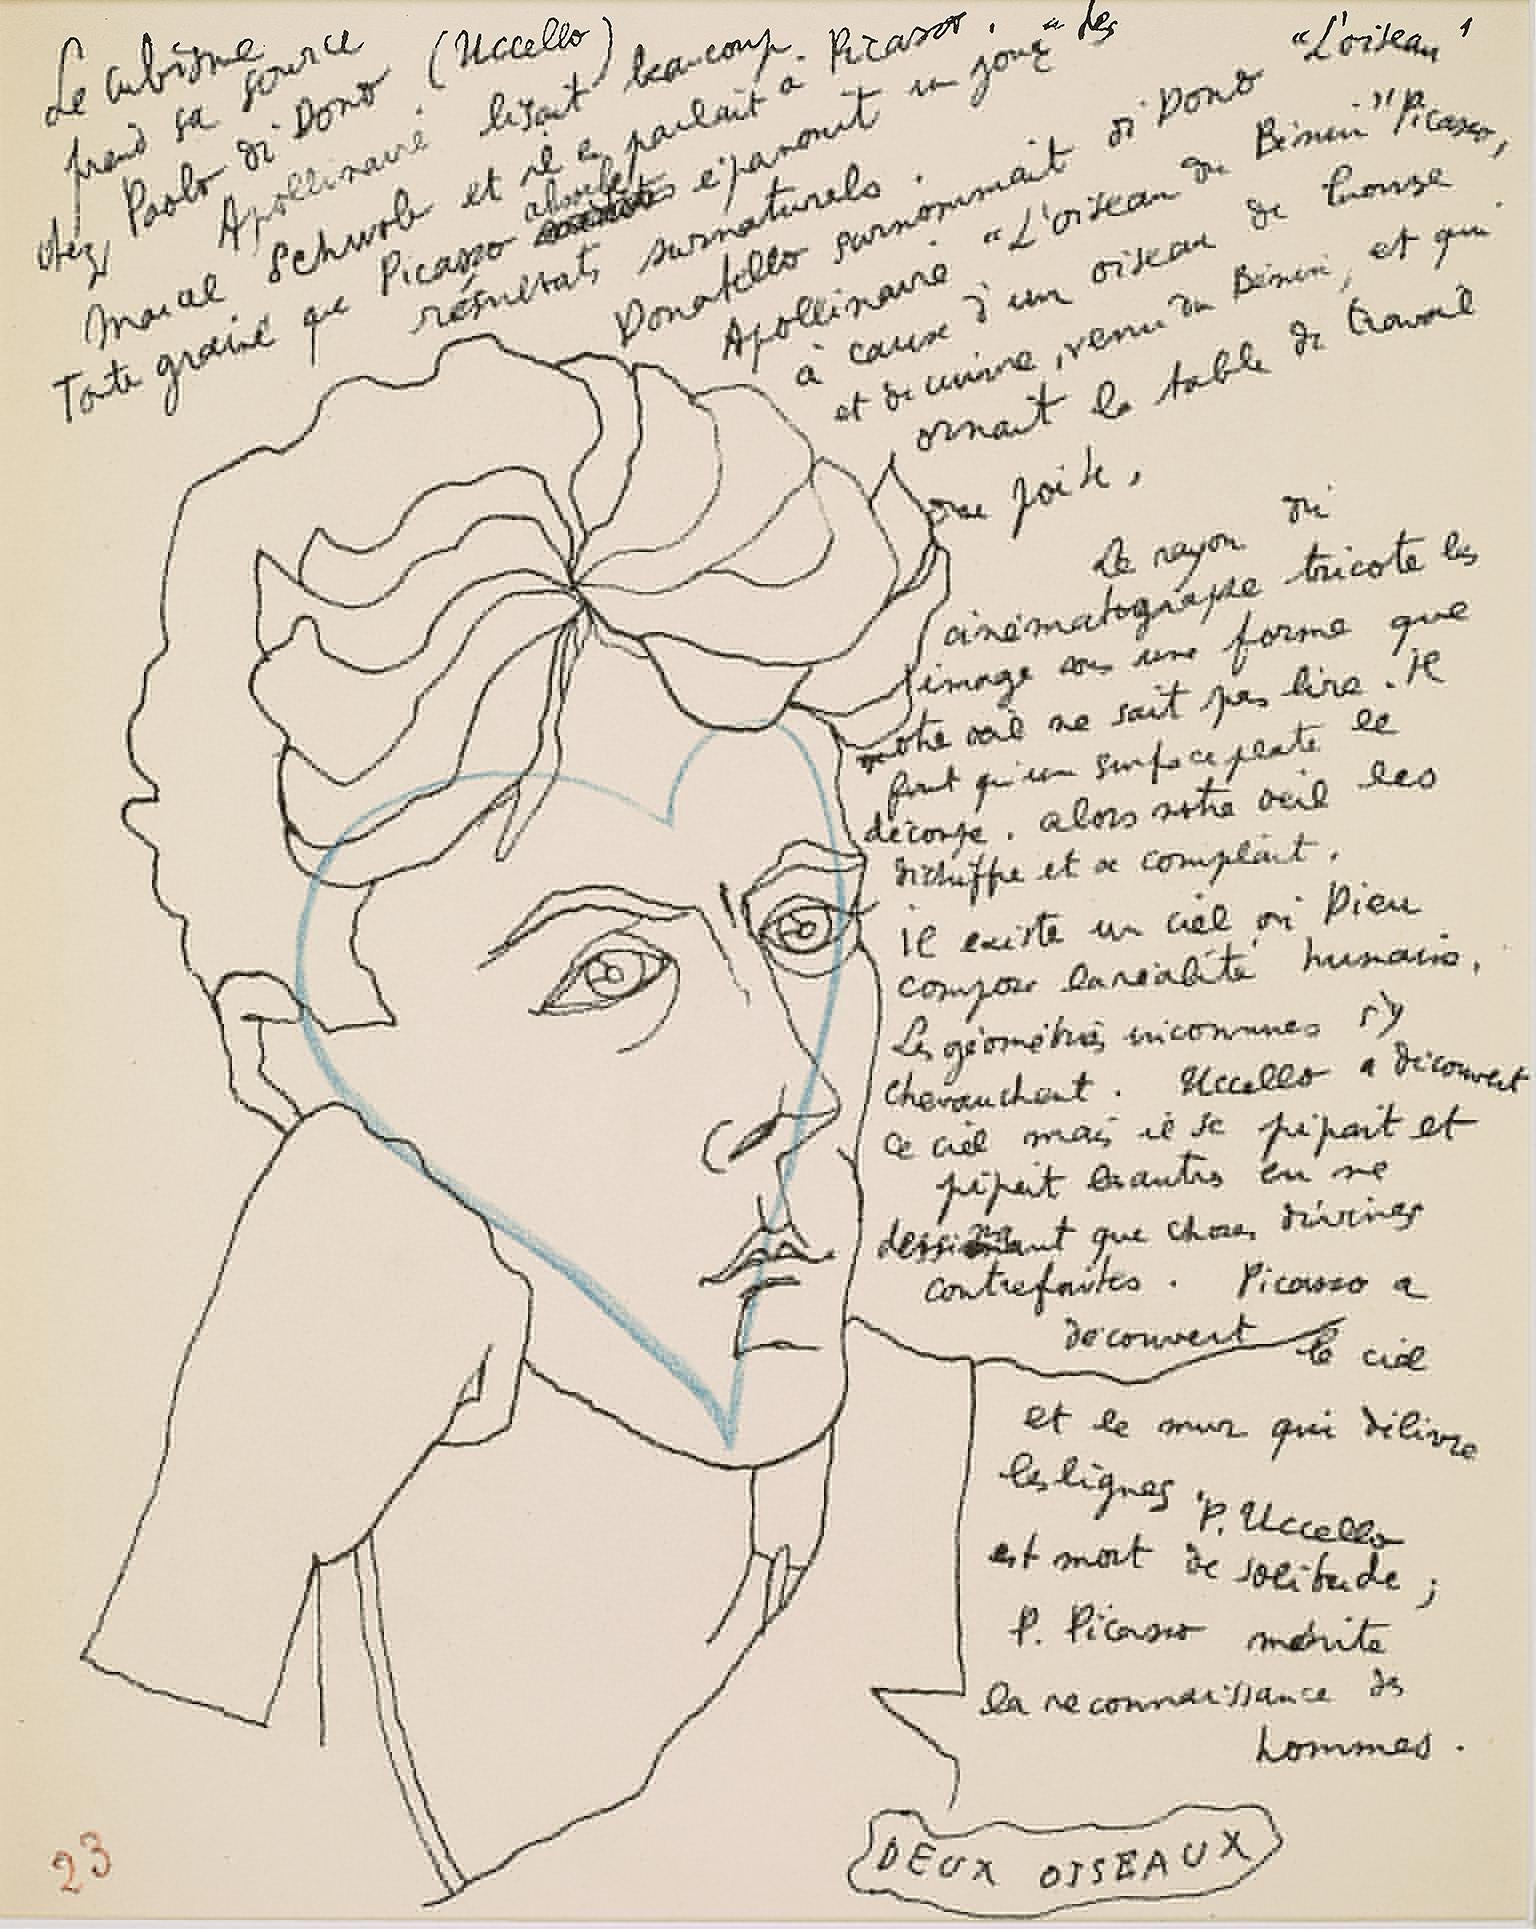 Le cubisme
prend sa source
chez Paolo di Dono (Uccello)
Apollinaire lisait beaucoup
Marcel Schwob et il en parlait à Picasso. "Les
Toute graine que Picasso absorbe épanouit un jour
résultats surnaturels.
Donatello surnommait di Dono "L'oiseau"
Apollinaire "L'oiseau du Bénin" Picasso,
à cause d'un oiseau de bronze
et de cuivre, venu du Bénin, et qui
ornait la table de travail
du poète.
Le rayon du
cinématographe tricote les
image sous une forme que
notre œil ne sait pas lire. Il
faut qu'un surface plate le
découpe. alors notre œil les
déchiffre et se complait.
il existe un ciel où Dieu
compose la réalité humaine.
Les géométries inconnues s'y
chevauchent. Uccello a découvert
ce ciel mais il se pipait et
pipait les autres en ne
dessinant que choses divines
contrefaites. Picasso a
découvert le ciel
et le mur qui délivre
les lignes. P. Uccello
est mort de solitude ;
P. Picasso mérite
la reconnaissance des
hommes.
DEUX OISEAUX
23